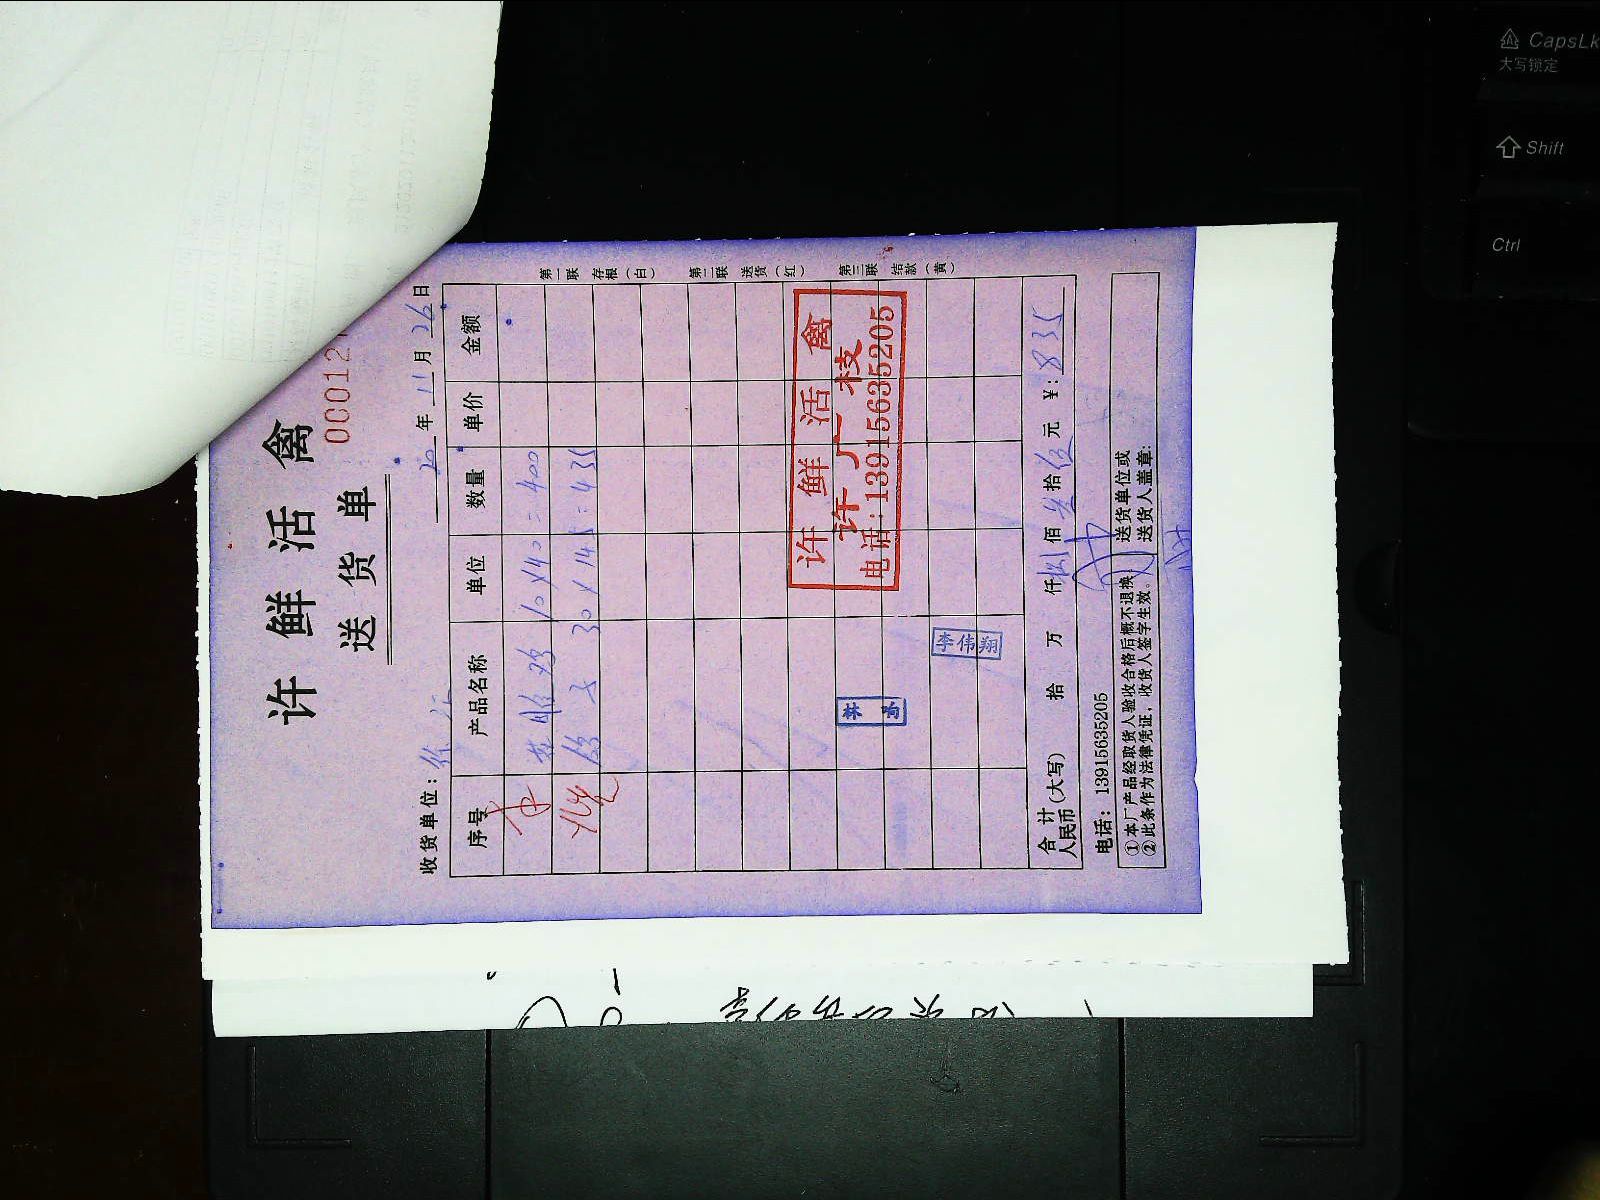 许鲜活禽
送货单
00012
收货单位：
20 年 11 月 26 日
序号 产品名称 单位 数量 单价 金额
10 × 40 = 400
鸽子 30 × 14.5 = 435
第一联 存根（白）
第二联 送货（红）
第三联 结款（黄）
许鲜活禽
许广枝
电话：13915635205
李伟翔
合计
人民币（大写） 拾 万 仟 捌 佰 叁 拾 伍 元 ¥：835
电话：13915635205
①本厂产品经取货人验收合格后概不退换
②此条作为法律凭证，收货人签字生效。
送货单位或
送货人盖章：
CapsLk
大写锁定
Shift
Ctrl